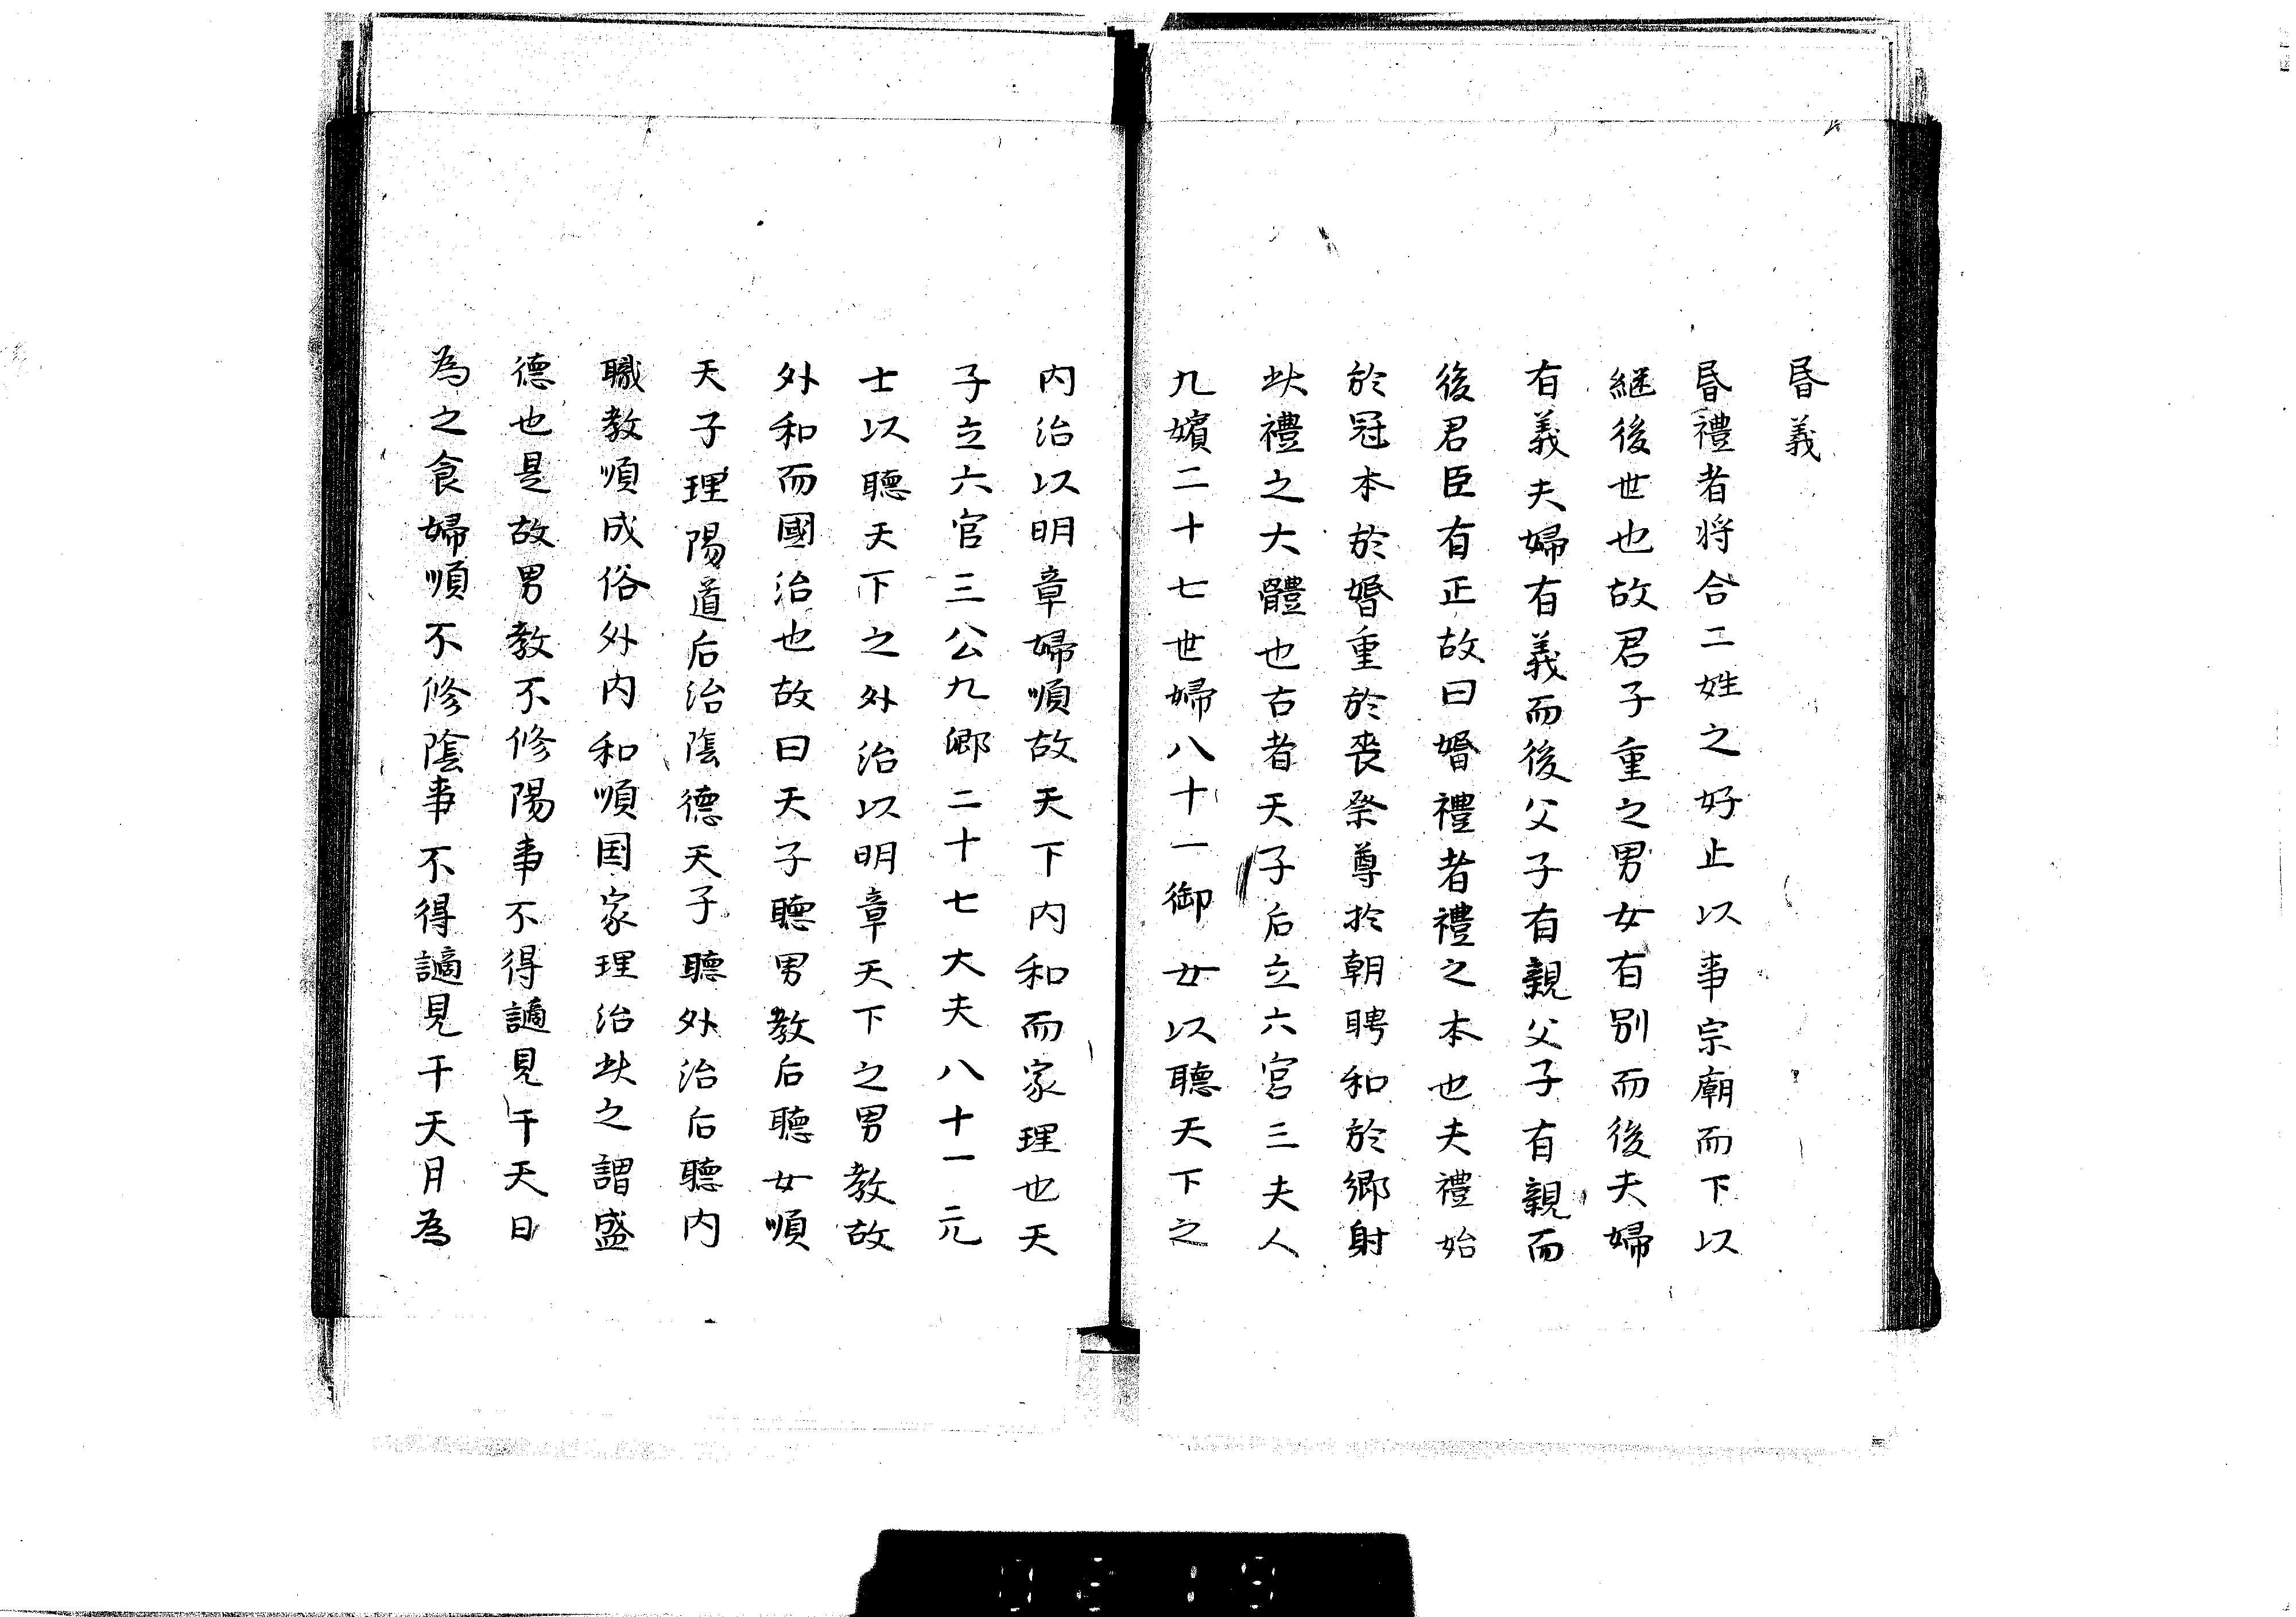 昏義
昏禮者将合二姓之好止以事宗廟而下以
継後世也故君子重之男女有別而後夫婦
有義夫婦有義而後父子有親父子有親而
後君臣有正故曰婚禮者禮之本也夫禮始
於冠本於婚重於喪祭尊於朝聘和於郷射
此禮之大體也古者天子后立六宮三夫人
九嬪二十七世婦八十一御女以聽天下之
内治以明章婦順故天下内和而家理也天
子立六官三公九卿二十七大夫八十一元
士以聽天下之外治以明章天下之男教故
外和而國治也故曰天子聽男教后聽女順
天子理陽道后治陰德天子聽外治后聽内
職教順成俗外内和順国家理治此之謂盛
德也是故男教不修陽事不得謫見于天日
為之食婦順不修陰事不得謫見于天月為